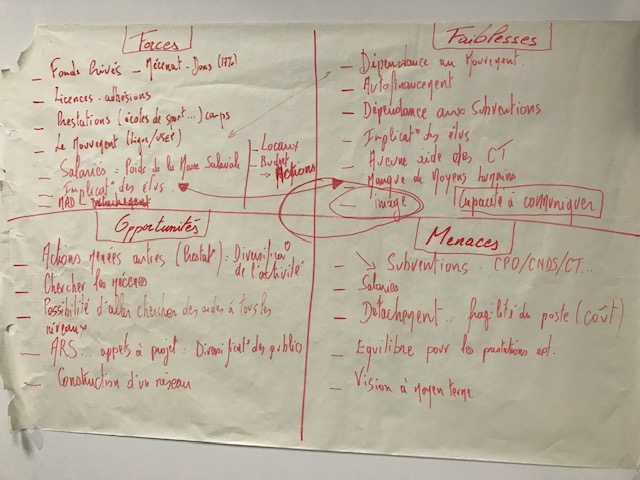 Forces
— Fonds Privés — Mécénat - Dons (18%)
— Licences - adhésions
— Prestations (écoles de sport...) camps
— Le Mouvement (Ligue/USEP)
— Salariés = Poids de la Masse Salariale
— Implicat° des élus
— MAD - Détachement
— Locaux
— Budget
→ Actions
Faiblesses
— Dépendance au Mouvement.
— Autofinancement
— Dépendance aux Subventions
— Implicat° des élus
— Aucune aide des CT
— Manque de Moyens humains
— image
Capacité à communiquer
Opportunités
— Actions menées autres (Prestat°: Diversificat°
de l'activité
— Chercher les mécènes
— Possibilité d'aller chercher des aides à tous les
niveaux
— ARS... appels à projet : Diversificat° des publics
— Construction d'un réseau
Menaces
↘ Subventions . CPO/CNDS/CT...
— Salariés
— Détachement .. fragilité du poste (coût)
— Equilibre pour les prestations ext.
— Vision à Moyen terme